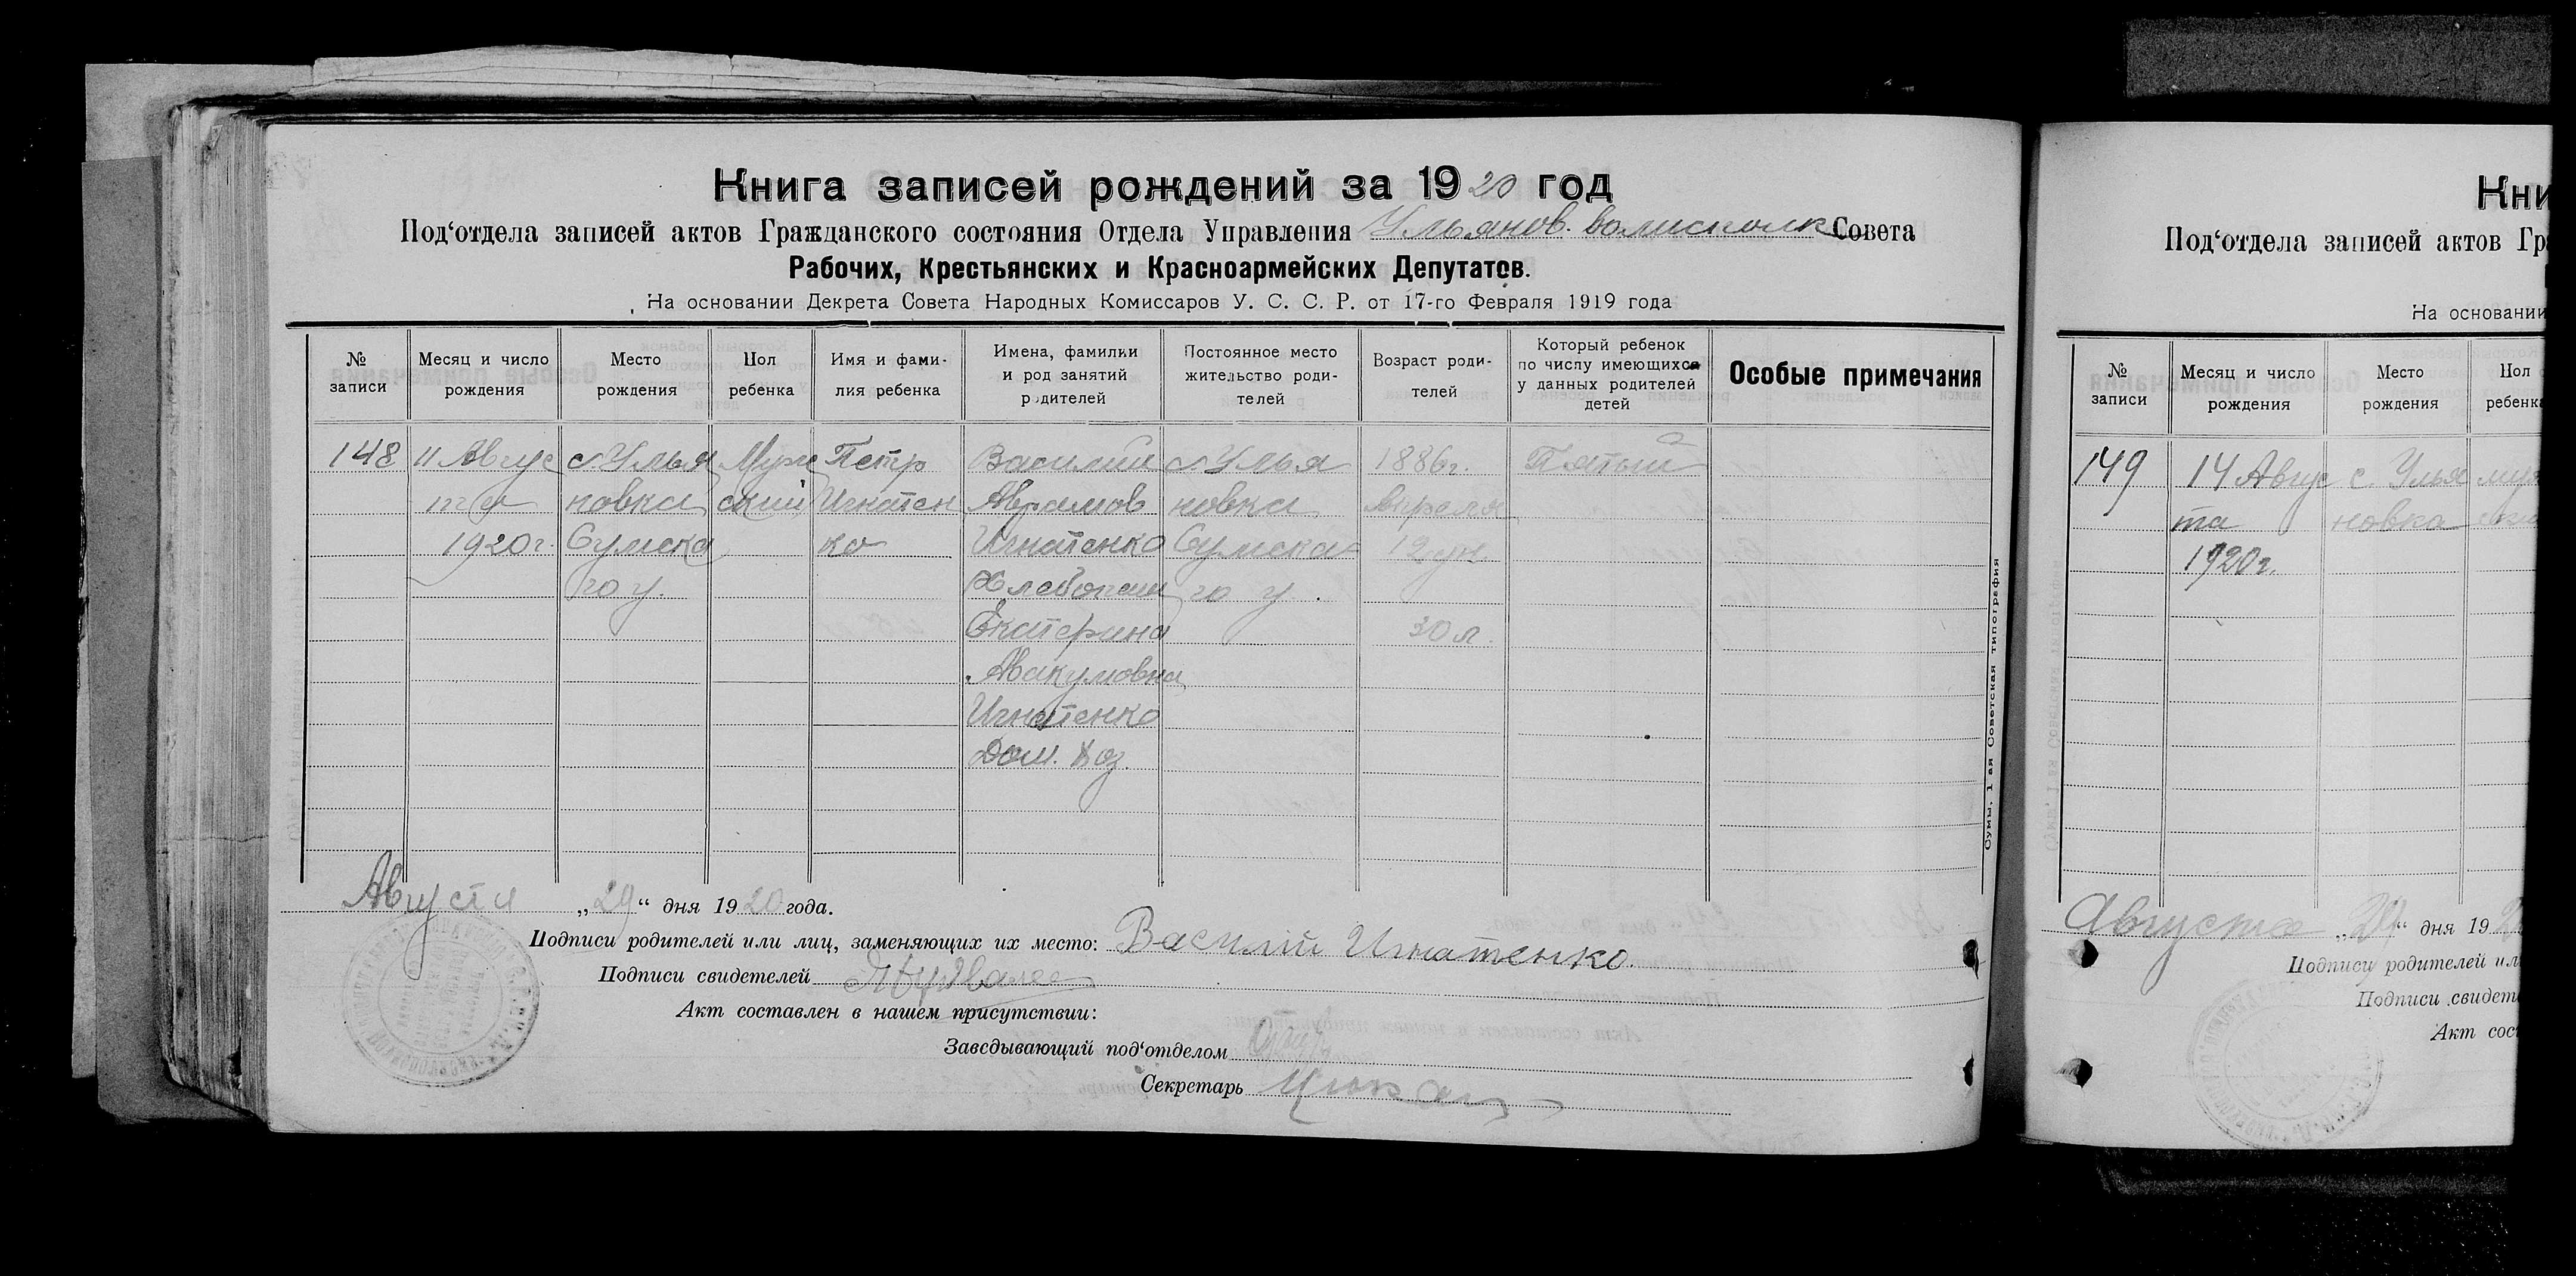 Книга записей рождений за 1920 год
Под‘отдела записей актов Гражданского состояния Отдела Управления Ульянов. волисполк Совета
Рабочих, Крестьянских и Красноармейских Депутатов.
На основании Декрета Совета Народных Комиссаров У. С. С. Р. от 17-го Февраля 1919 года
№ записи
Месяц и число рождения
Место рождения
Пол ребенка
Имя и фами-
лия ребенка
Имена, фамилки
и род занятий
родителей
Постоянное место
жительство роди-
телей
Возраст роди-
телей
Который ребенок
по числу имеющихся
у данных родителей
детей
Особые примечания
148
11 Авгус
та
1920г.
с. Улья
новка
Сумска
го у.
Муж
ской
Петр
Игнатен
ко
Василий
Аврамов
Игнатенко
Хлебопаш
Екатерина
Авакумовна
Игнатенко
Дом. хоз.
с. Улья
новка
Сумска
го у.
1886г.
Апреля
12 дн.
30 л.
Пятый
Августа „29“ дня 1920 года.
Подписи родителей или лиц, заменяющих их место: Василий Игнатенко.
Подписи свидетелей
Акт составлен в нашем присутствии:
Заведывающий под‘отделом
Секретарь
Сумы, 1 ая Советская типография
Кни
Под‘отдела записей актов Гр
На основании
№ записи
Месяц и число рождения
Место рождения
Пол
ребенк
149
14 Авгус
та
1920г.
с. Улья
новка
муж
Августа „29“ дня 19
Подписи родителей ил
Подписи свидет
Акт сос